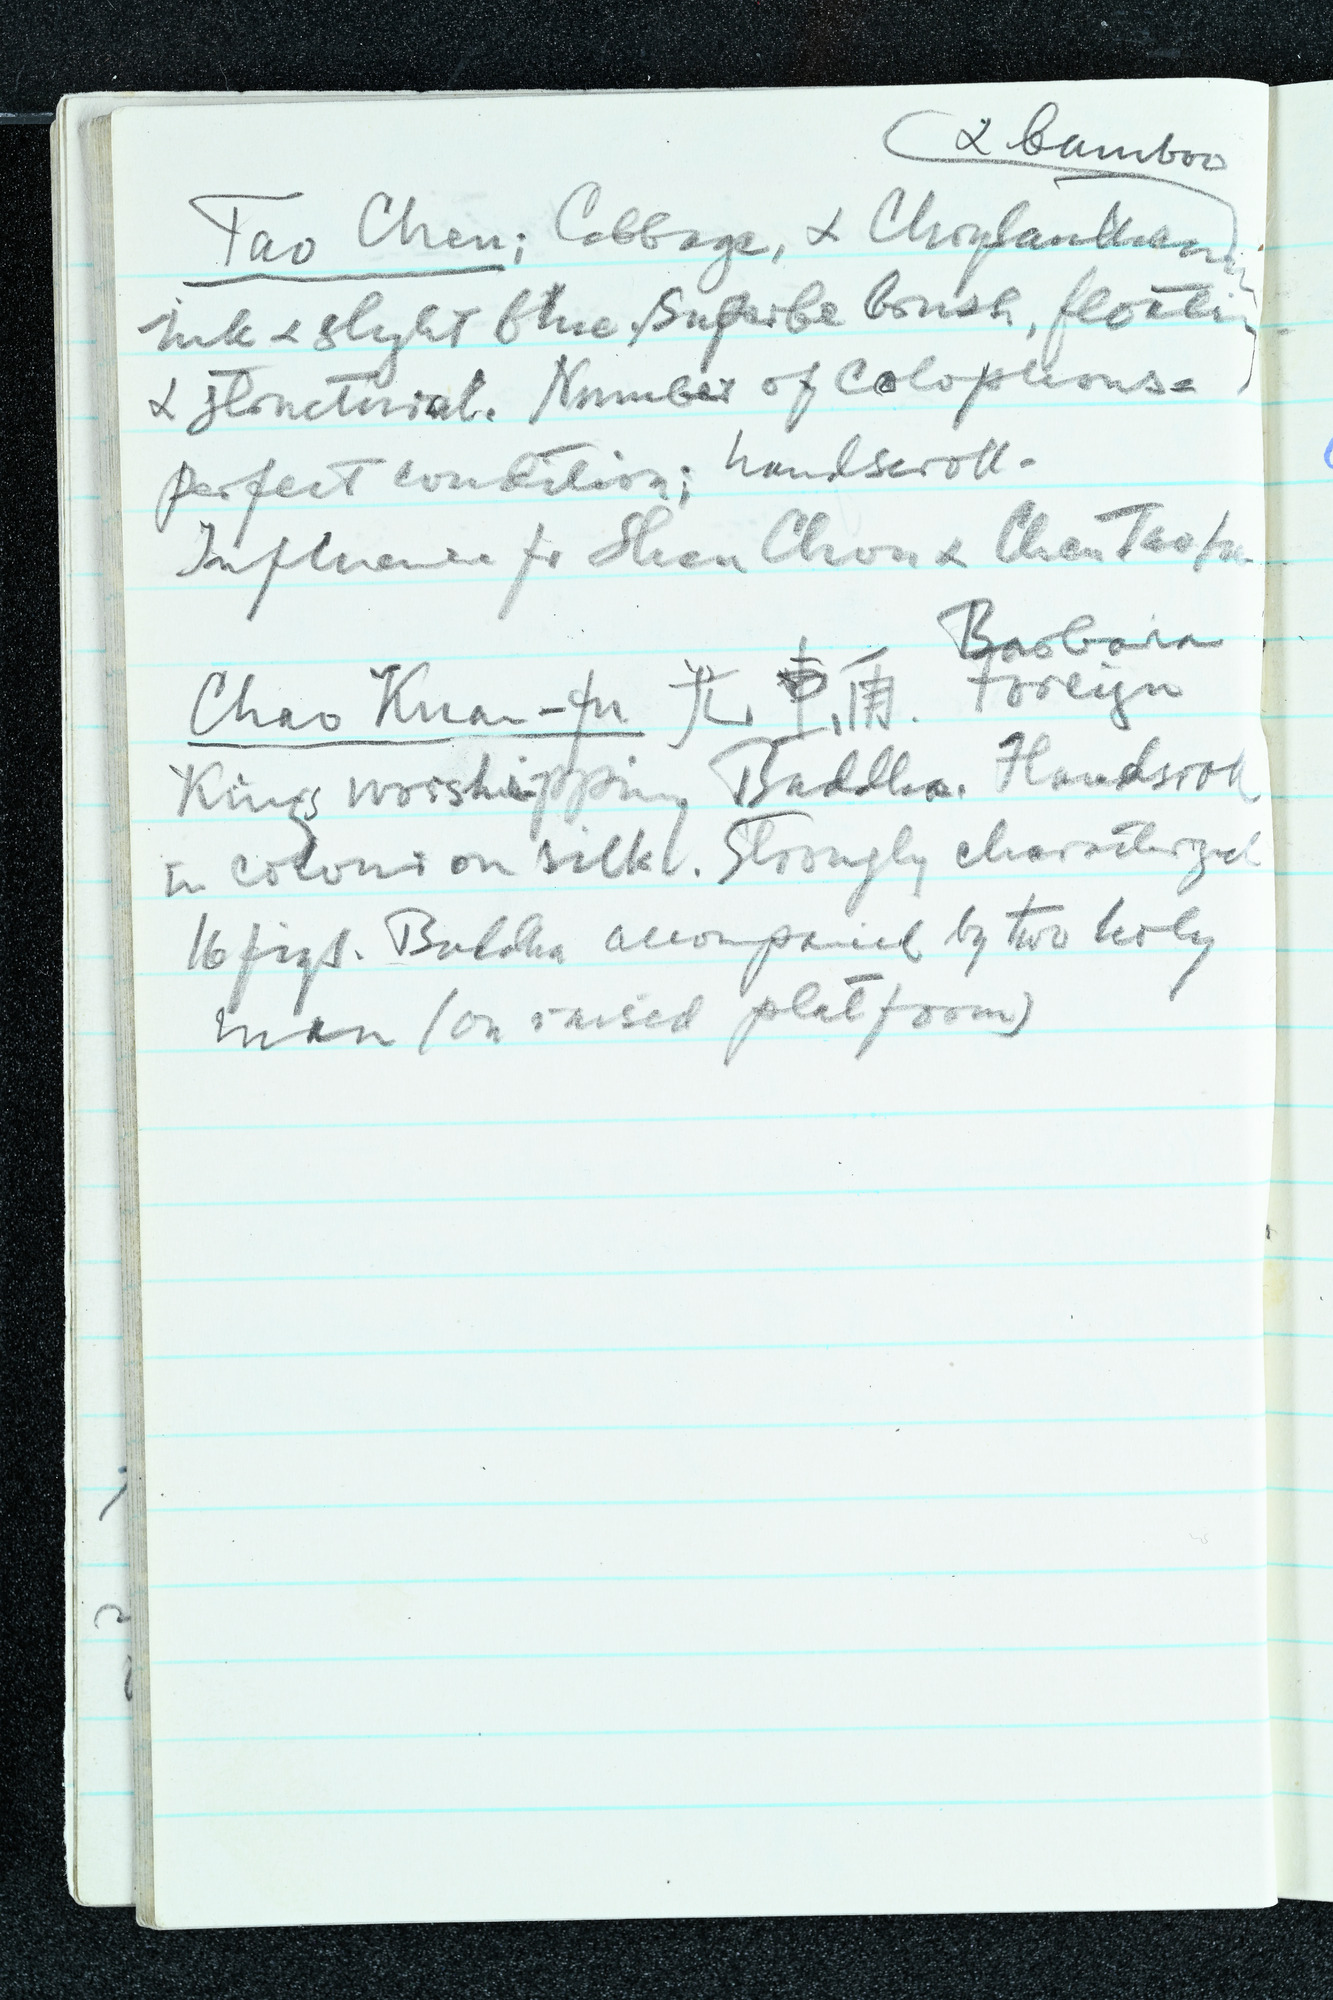 & bamboo
Tao Chen; Cabbage, & Chrylanthem
ink & slyht blue. Superbe brush, floatin
& structurial. Number of colophons -
perfect condition; handscroll -
Influence fr Shen Chou & Chen Tao fu
Barbarian
Chao Kuan-fu 光 車甫. Foreign
Kings worshipping Buddha. Handscroll
in colour on silk. Strongly characterized
16 figs. Buddha accompanied by two holy
men (on raised platform)